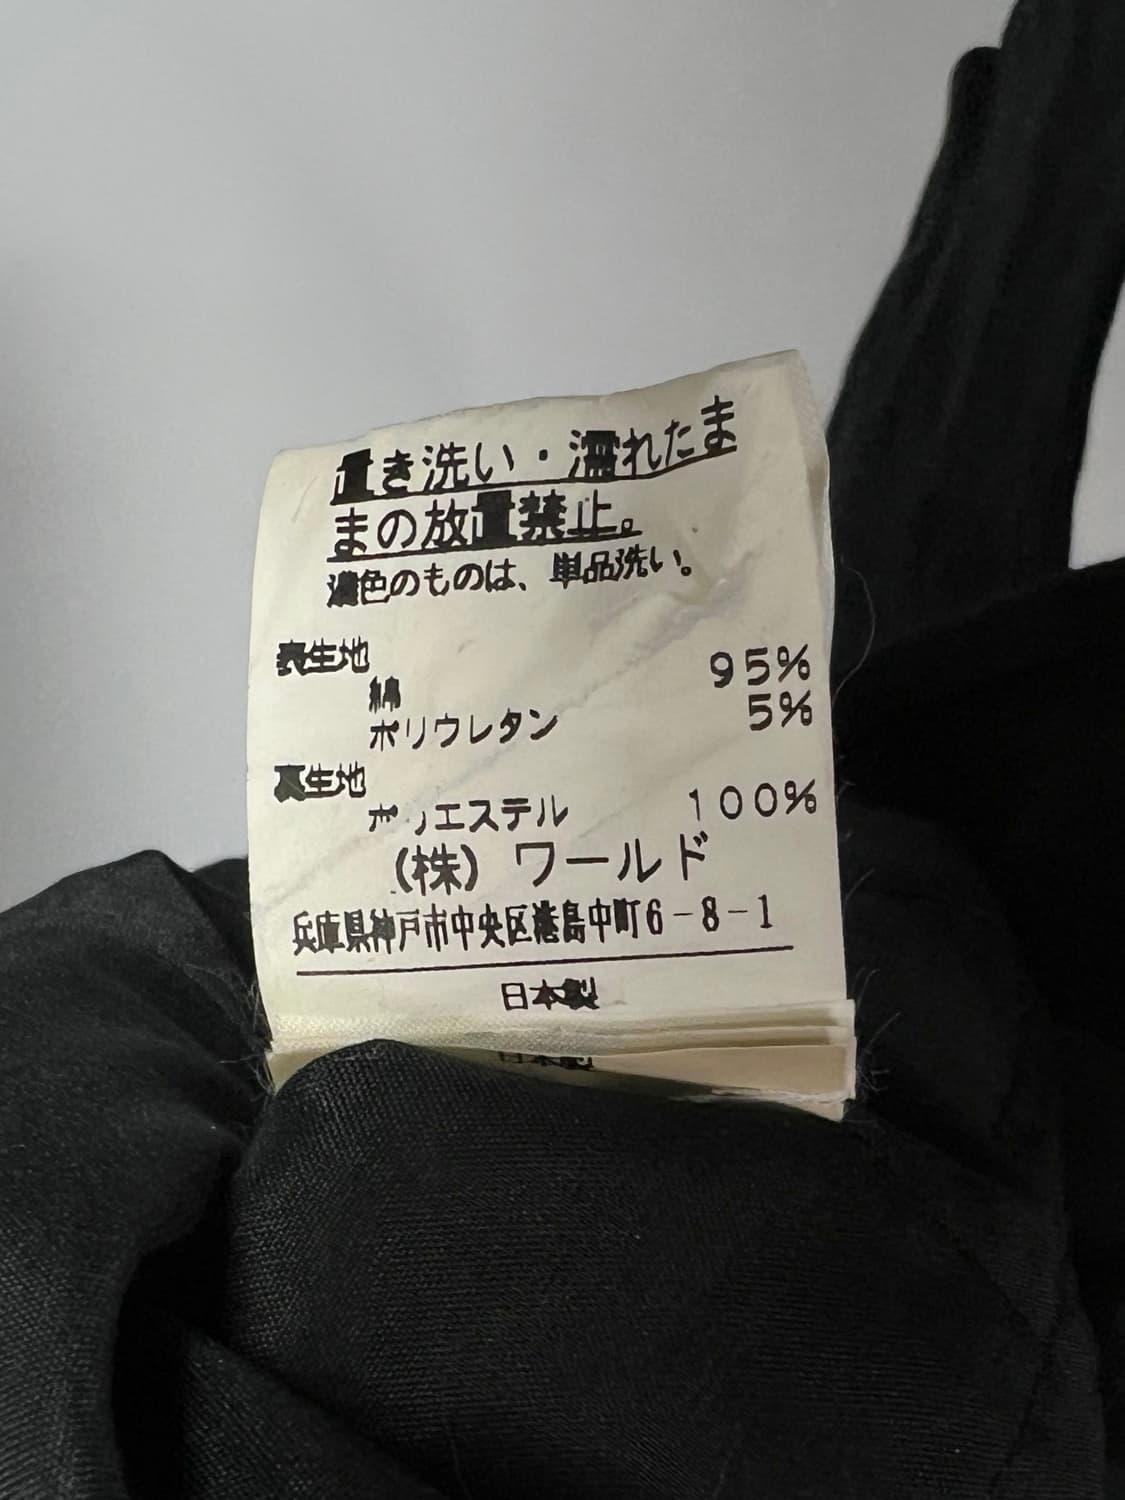 置き洗い・濡れたま
まの放置禁止。
濃色のものは、単品洗い。
表生地
綿 95%
ポリウレタン 5%
裏生地
ポリエステル 100%
(株) ワールド
兵庫県神戸市中央区港島中町6-8-1
日本製
日本製